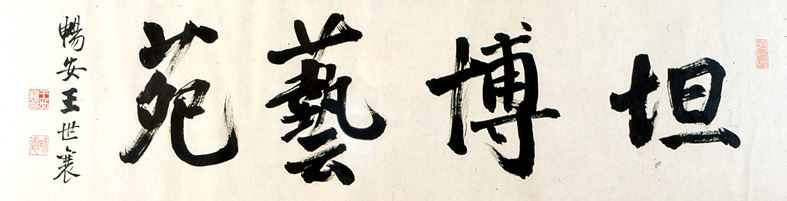 坦博藝苑
暢安王世襄